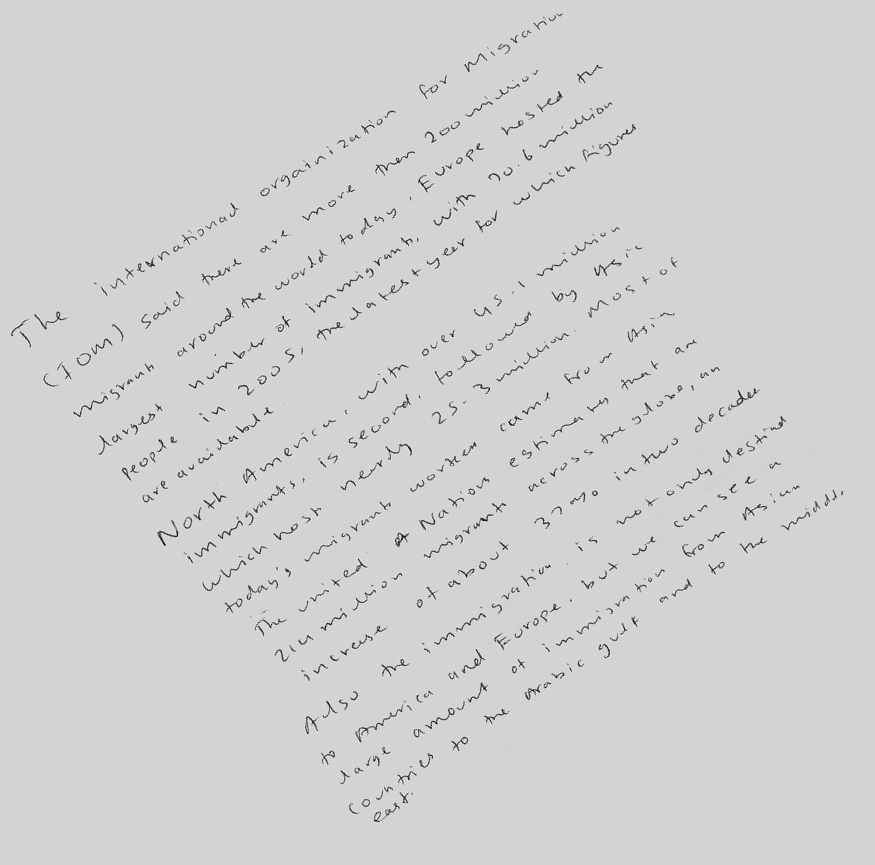 The international orgainization for Migration
(IOM) said there are more then 200 million
migrant around the world today, Europe hosted the
largest number of immigrant, with 70.6 million
People in 2005, the latest year for which figures
are available.
North America, with over 45.1 million
immigrants, is second, followed by Asia
which host nearly 25.3 million. Most of
today's migrant workers came from Asia
The united A Nations estimates that are
214 million migrants across the globe, an
increase of about 37% in two decades
Also the immigration is not only destined
to America and Europe. but we can see a
large amount of immigration from Asian
Countries to the Arabic gulf and to the middle
east.